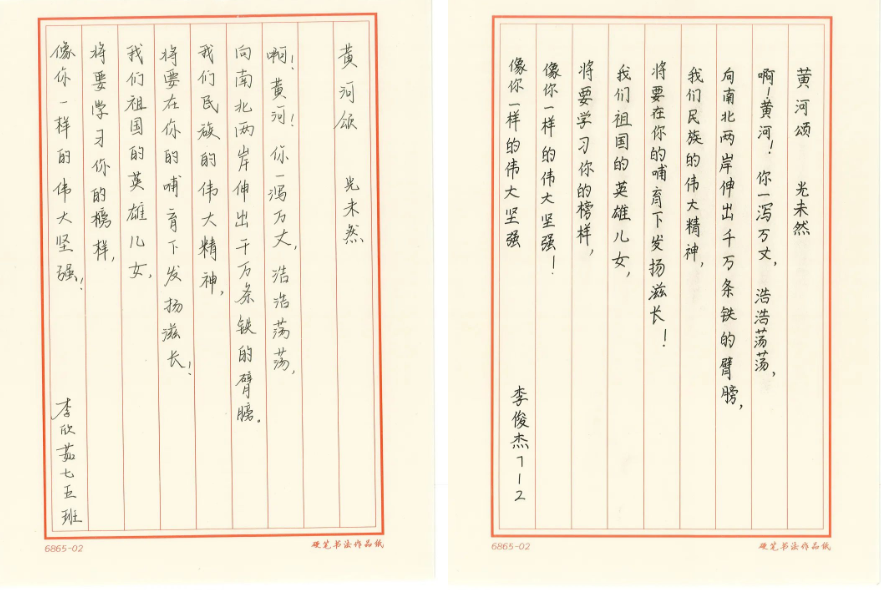 黄河颂 光未然
啊！黄河！你一泻万丈，浩浩荡荡，
向南北两岸伸出千万条铁的臂膀。
我们民族的伟大精神，
将要在你的哺育下发扬滋长！
我们祖国的英雄儿女，
将要学习你的榜样，
像你一样的伟大坚强！
李欣茹七五班
6865-02
硬笔书法作品纸
黄河颂 光未然
啊！黄河！你一泻万丈，浩浩荡荡，
向南北两岸伸出千万条铁的臂膀，
我们民族的伟大精神，
将要在你的哺育下发扬滋长！
我们祖国的英雄儿女，
将要学习你的榜样，
像你一样的伟大坚强！
像你一样的伟大坚强
李俊杰712
6865-02
硬笔书法作品纸